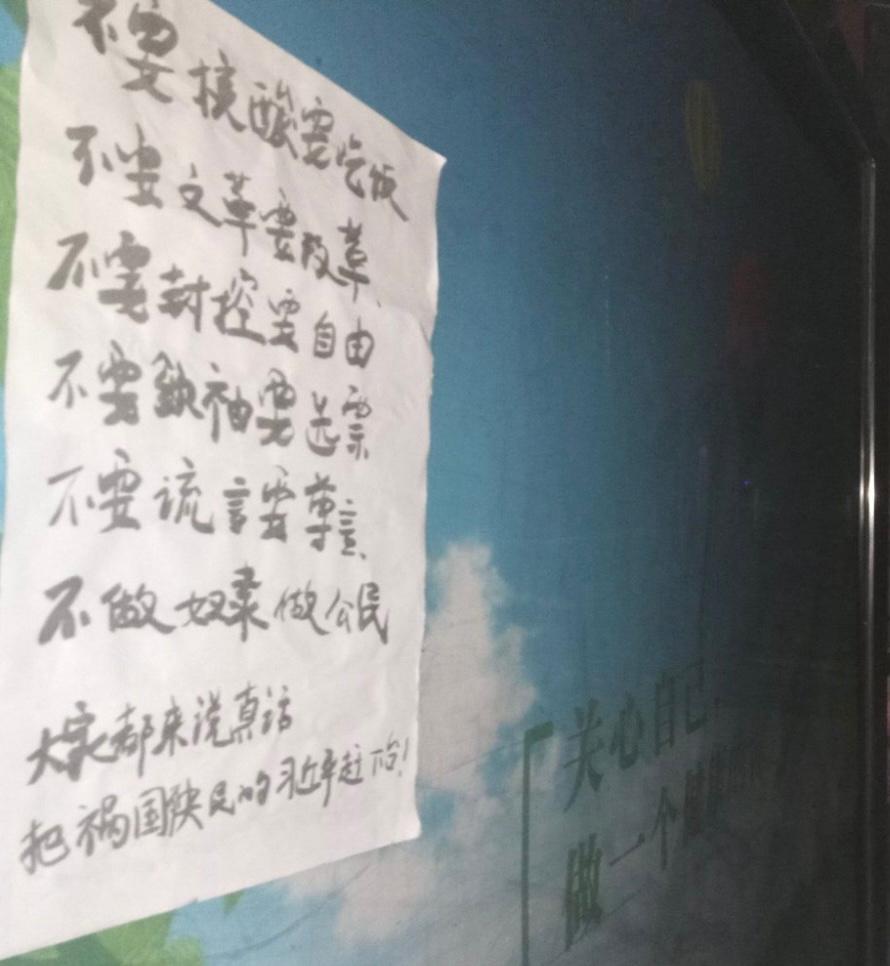 不要核酸要吃饭
不要文革要改革
不要封控要自由
不要领袖要选票
不要谎言要尊言
不做奴隶做公民
大家都来说真话
把祸国殃民的习近平赶下台!
「关心自己,
做一个健康